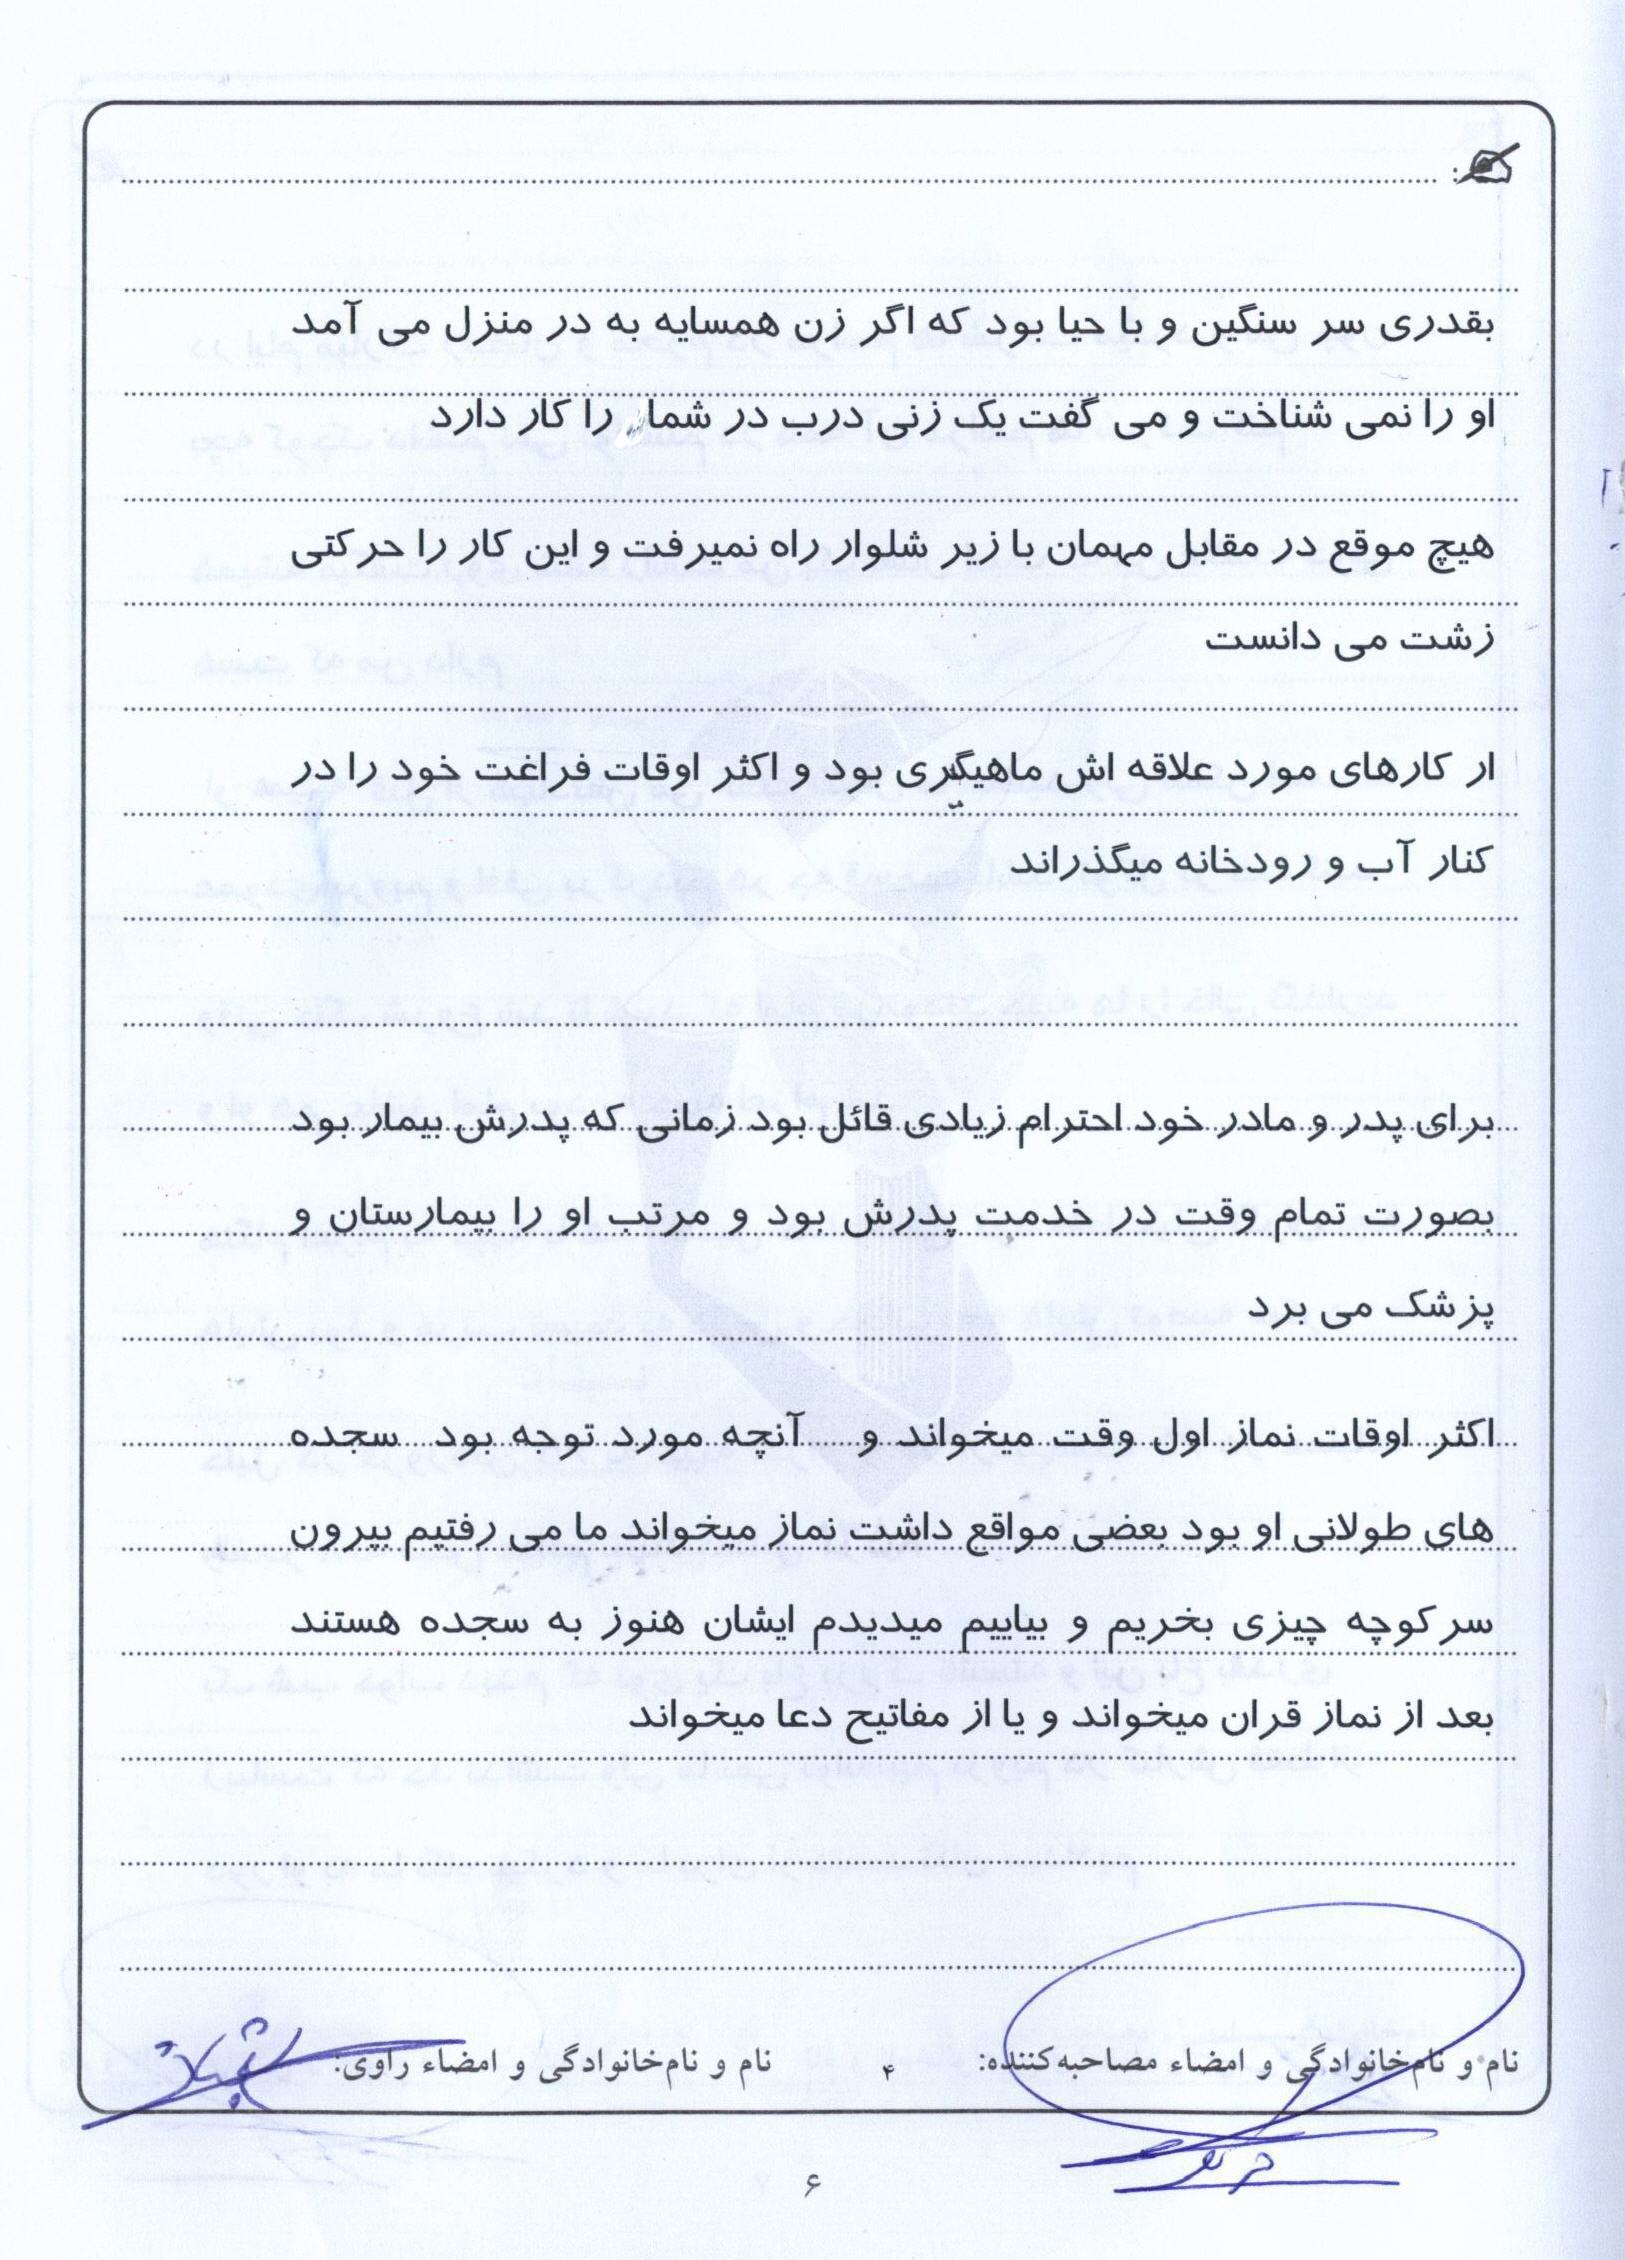 بقدری سر سنگین و با حیا بود که اگر زن همسایه به در منزل می آمد
او را نمی شناخت و می گفت یک زنی درب در شما را کار دارد
هیچ موقع در مقابل مهمان با زیر شلوار راه نمیرفت و این کار را حرکتی
زشت می دانست
ار کارهای مورد علاقه اش ماهیگیری بود و اکثر اوقات فراغت خود را در
کنار آب و رودخانه میگذراند
برای پدر و مادر خود احترام زیادی قائل بود زمانی که پدرش بیمار بود
بصورت تمام وقت در خدمت پدرش بود و مرتب او را بیمارستان و
پزشک می برد
اکثر اوقات نماز اول وقت میخواند و آنچه مورد توجه بود سجده
های طولانی او بود بعضی مواقع داشت نماز میخواند ما می رفتیم بیرون
سر کوچه چیزی بخریم و بیاییم میدیدم ایشان هنوز به سجده هستند
بعد از نماز قران میخواند و یا از مفاتیح دعا میخواند
نام و نام‌خانوادگی و امضاء مصاحبه‌کننده: ۴ نام و نام‌خانوادگی و امضاء راوی:
۶